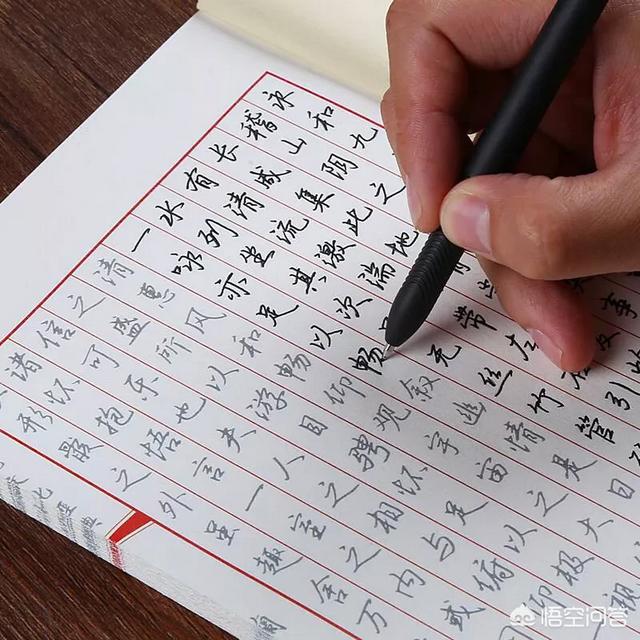 永和九
稽山阴之
长咸集此地
有清流激湍 带左右引
水列坐其次 无丝竹管
一咏亦足以畅叙幽情是日
清惠风和畅仰观宇宙之大
之盛所以游目骋怀足以极
信可乐也夫人之相与俯仰
诸怀抱悟言一室之内或
形骸之外虽趣舍万
悟空问答